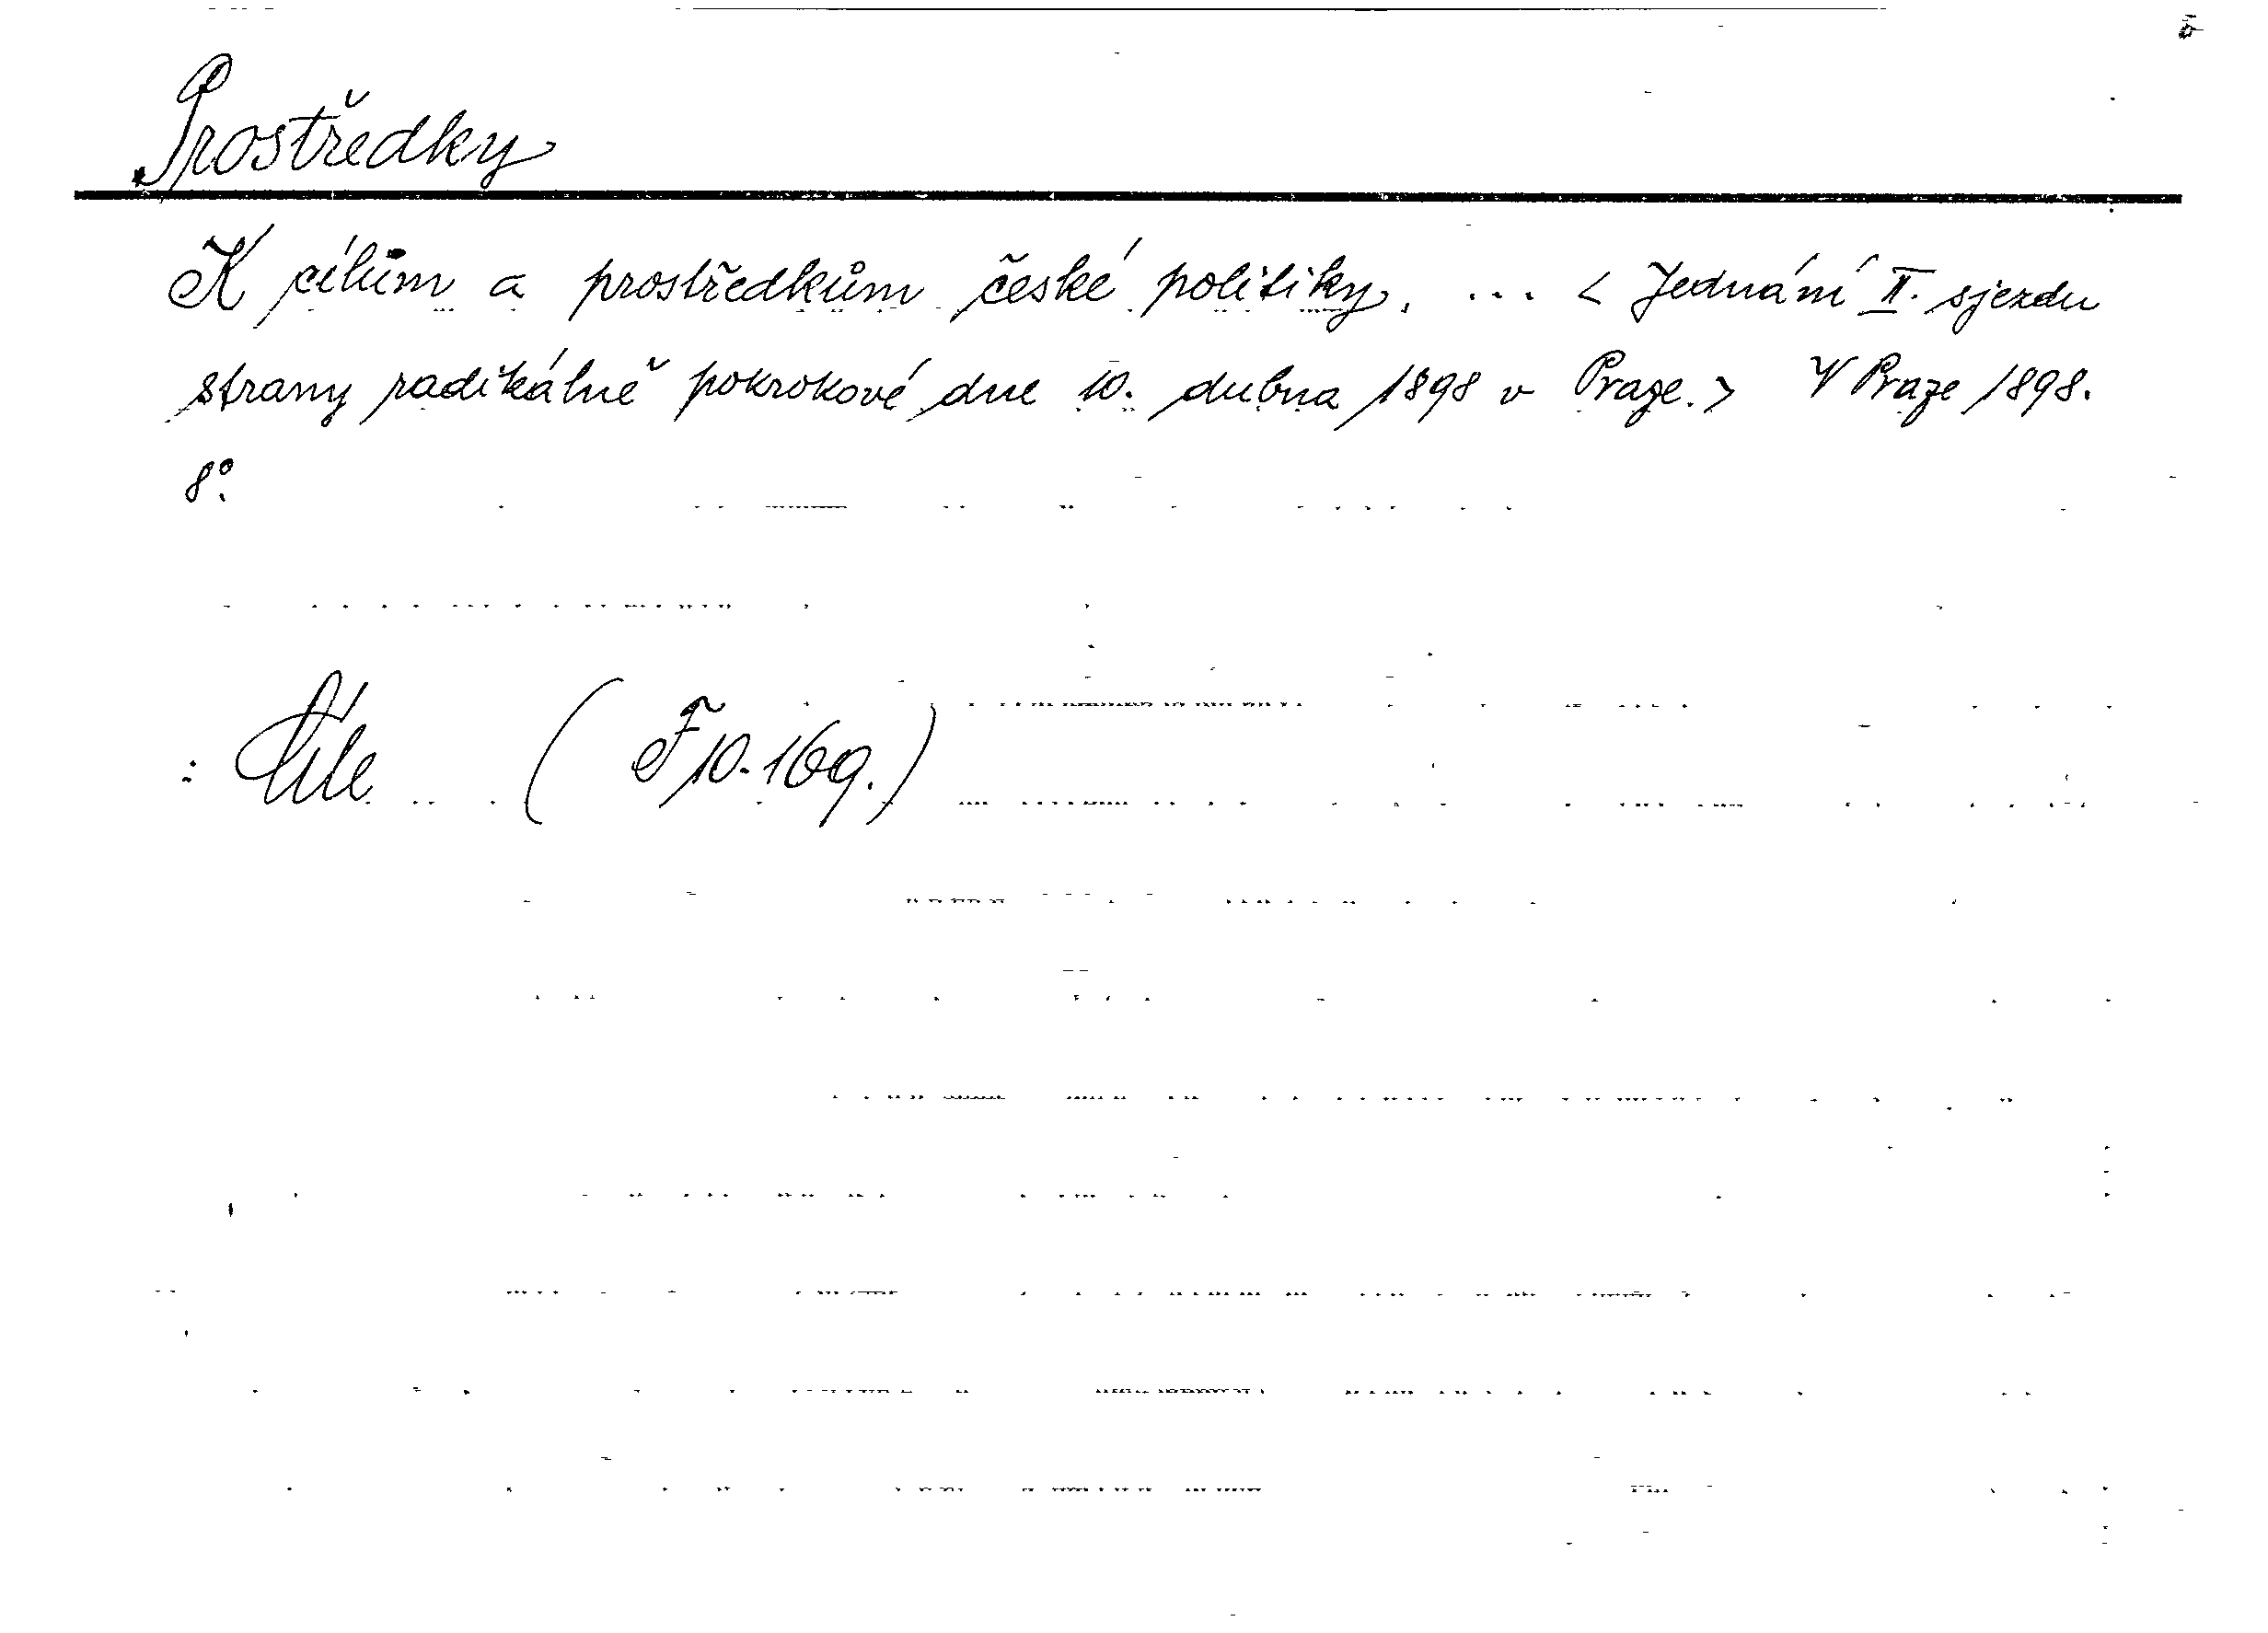 Prostředky
K cílům a prostředkům české politiky. ... < Jednání II. sjezdu
strany radikálně pokrokové dne 10. dubna 1898 v Praze. > V Praze 1898.
8°.
: Cíle (F 10.169.)